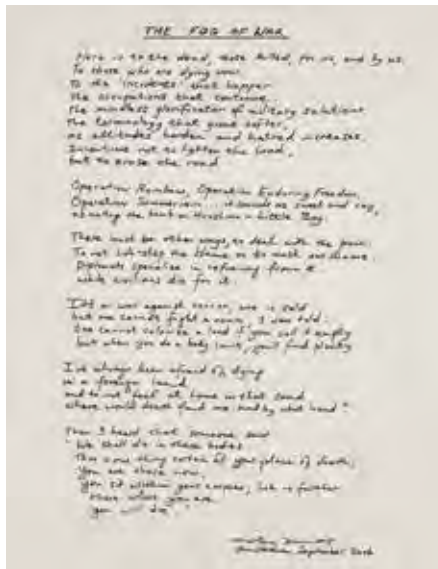 THE FOG OF WAR
Here is to the dead, those killed, for us, and by us.
To those who are dying now
To the 'incidents' that happen
the occupations that continue
the mindless glorification of military solutions
the terminology that goes softer
as attitudes harden and hatred increases.
not to lighten the load,
but to erase the road
Operation Rainbow, Operation Enduring Freedom,
Operation ... it sounds as sweet and
as the bomb on Hiroshima Little Boy.
There must be other ways, to deal with the pain.
To not side-step the blame or to mask our shame.
Diplomats specialise in refraining from it
while civilians die for it.
It's a war against terror, one is told
but one cannot fight a noun, I was told.
One cannot colonize a land if you call it empty
but when you do a body count, you'll find plenty
I've always been afraid of dying
in a foreign land
and to not 'feel' at home in that sand
where would death find me and by what hand?
Then I heard that someone said
"We shall die in these bodies
This one thing certain of your place of death;
You are there now.
You sit within your corpse,
there where you are
you will die"
September